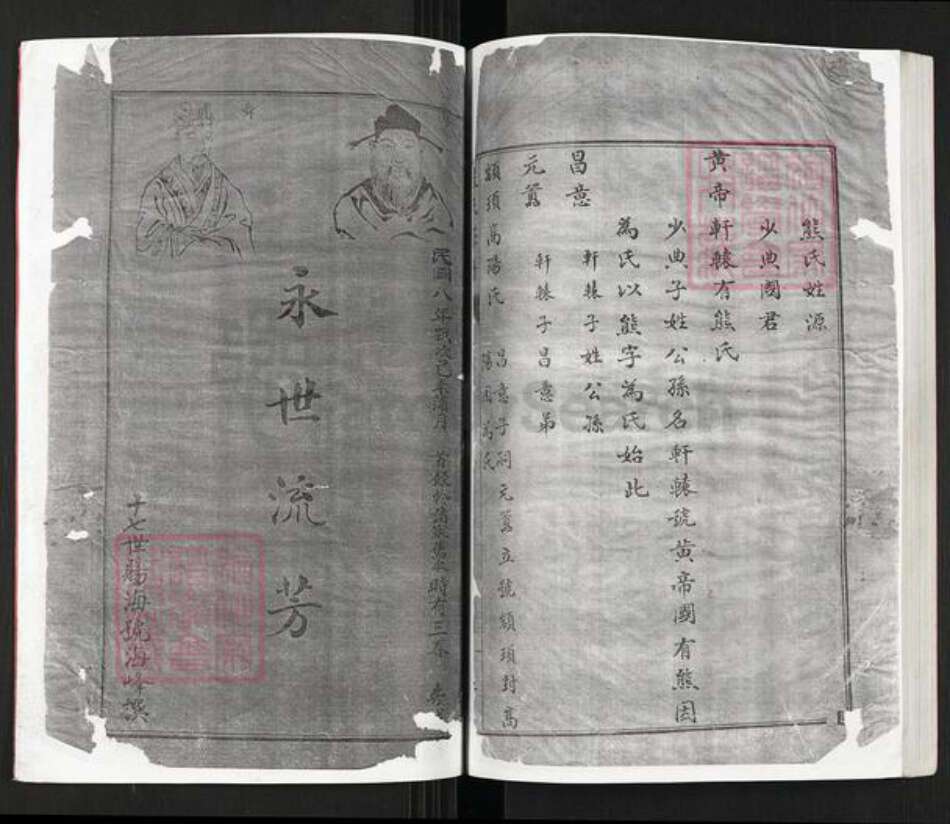 熊氏姓源
少典國君
黄帝軒轅有熊氏
少典子姓公孫名軒轅號黄帝國有熊因
為氏以熊字為氏始此
昌意
軒轅子姓公孫
元囂
軒轅子昌意弟
顓頊高陽氏
昌意子祠元囂立號顓頊封高
陽因為氏
民國八年歲次己未
時有三本
永世流芳
十七世賜海號海峰撰